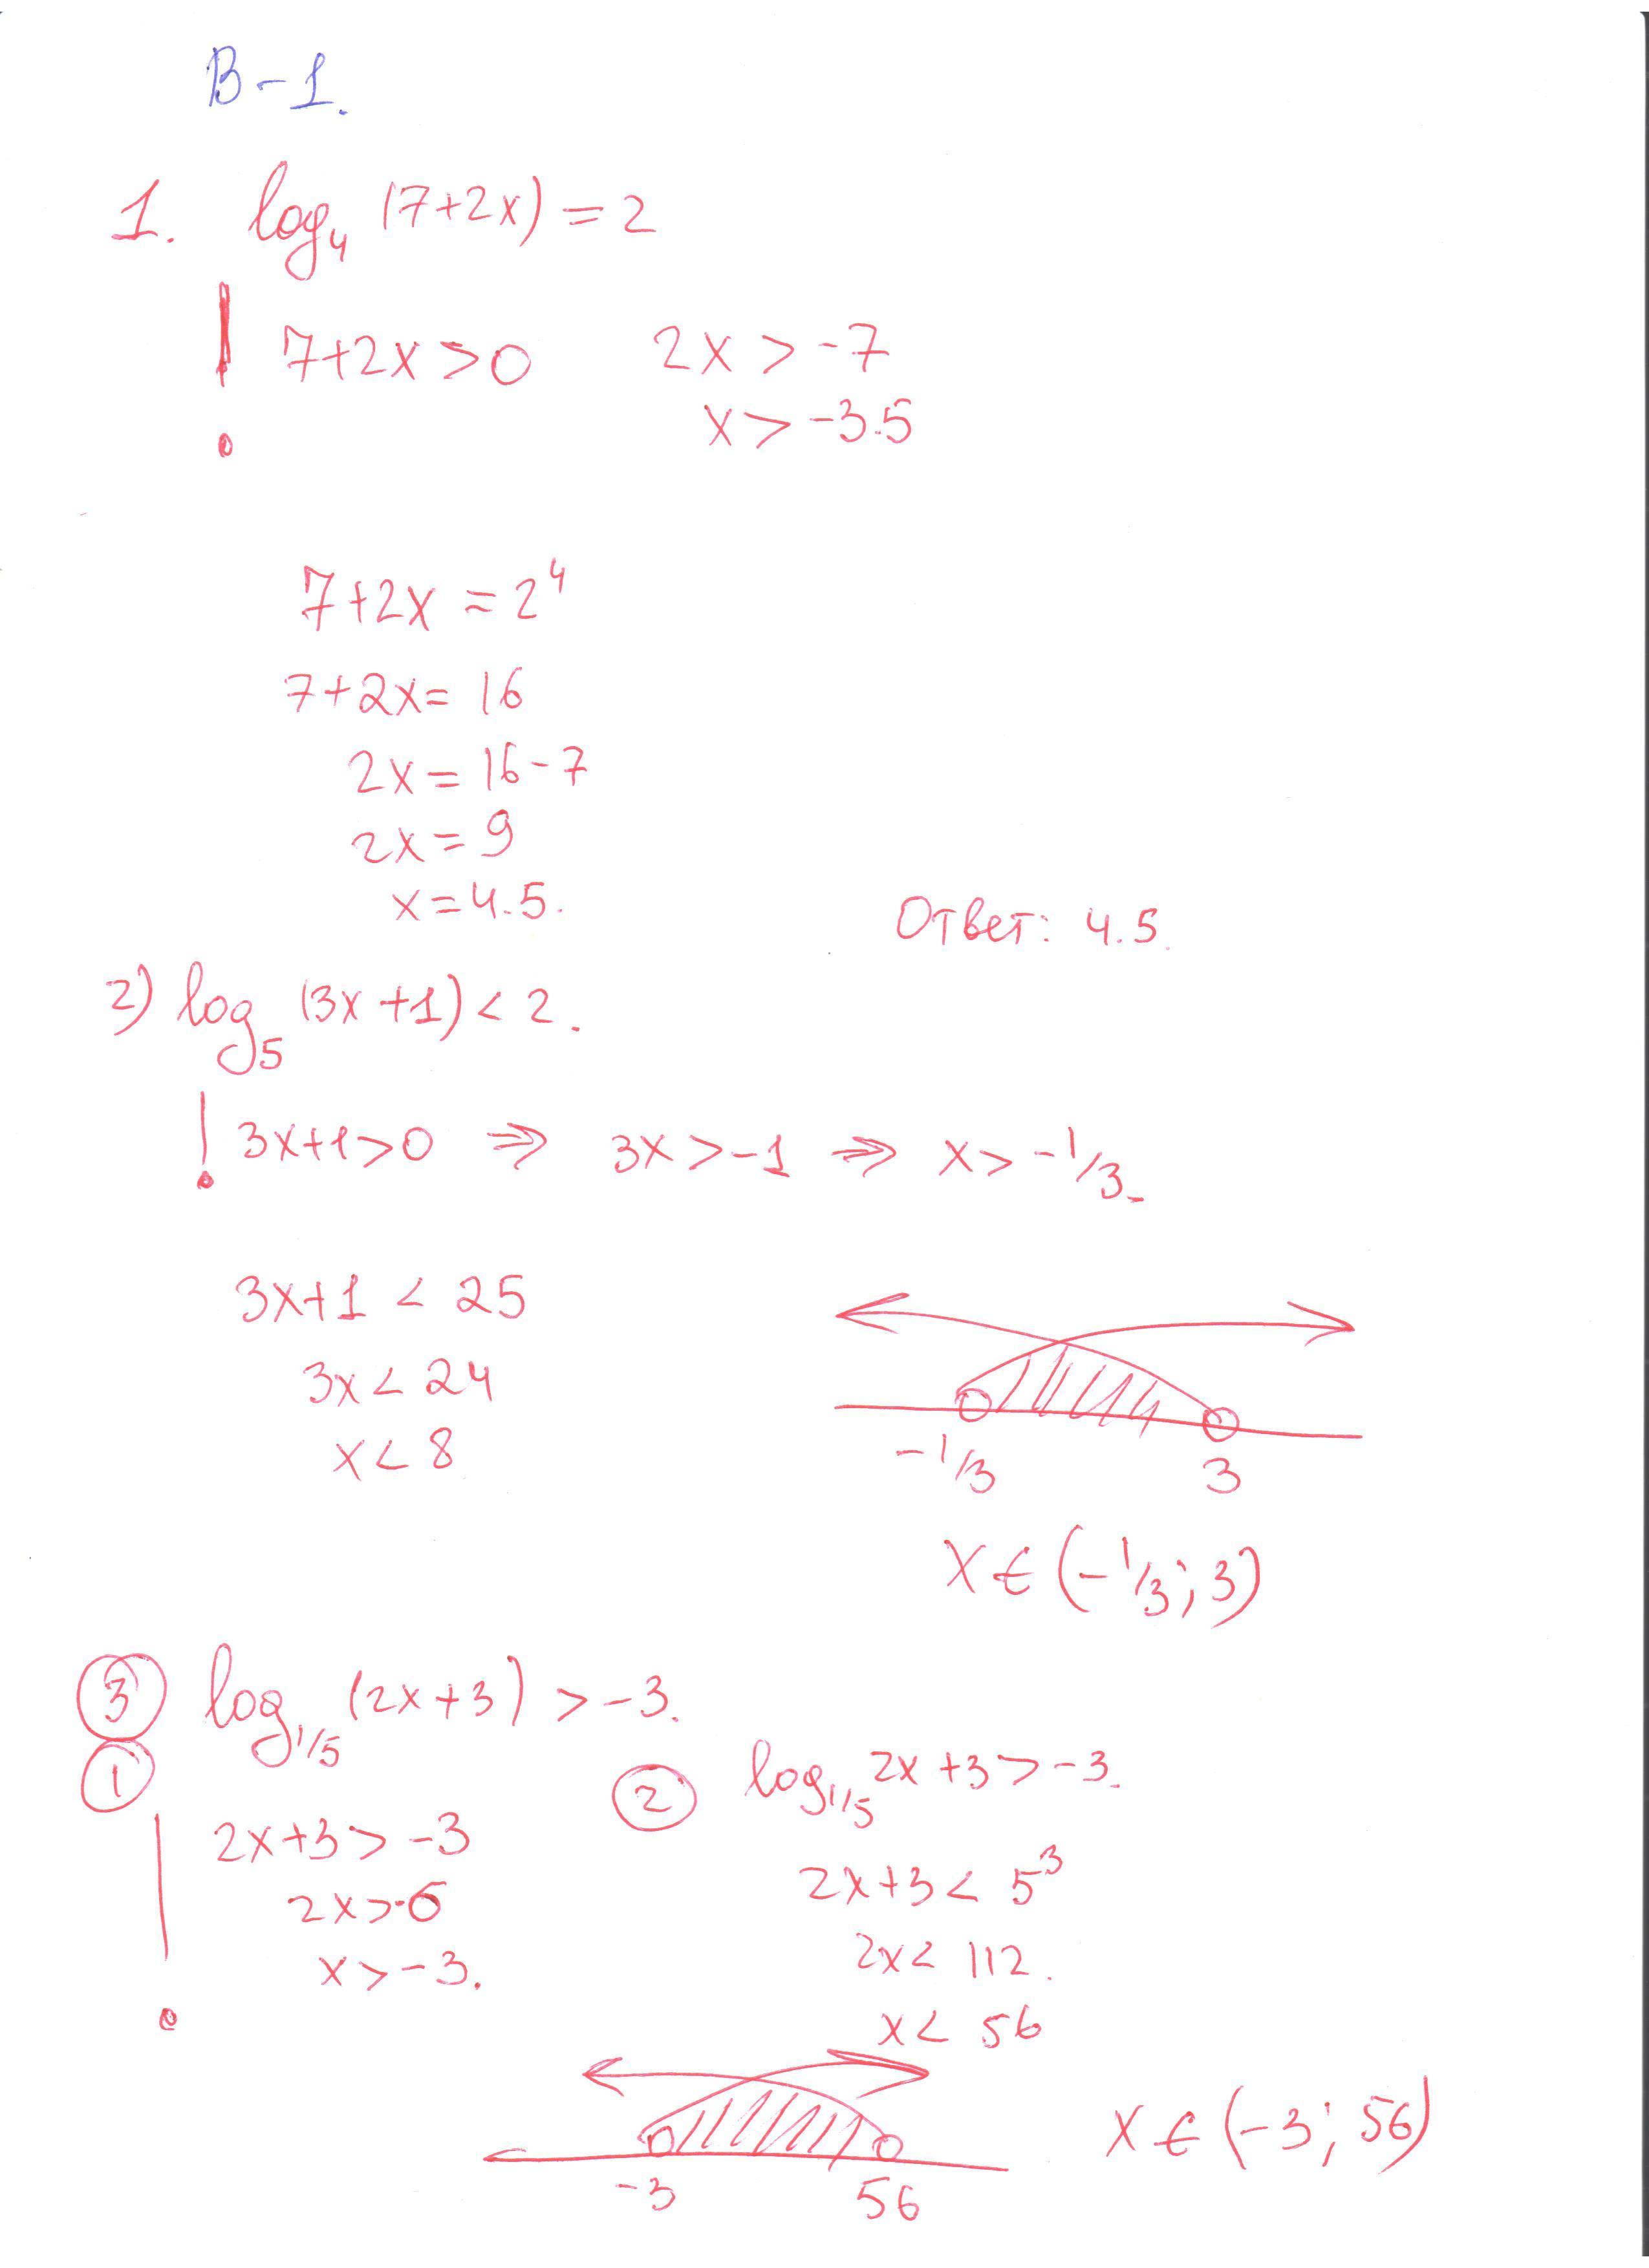 В-1.
1. log₄ (7+2x) = 2
! 7+2x > 0 2x > -7
x > -3.5
7+2x = 2⁴
7+2x = 16
2x = 16-7
2x = 9
x = 4.5.
Ответ: 4.5.
2) log₅ (3x+1) < 2.
! 3x+1 > 0 ⇒ 3x > -1 ⇒ x > -1/3.
3x+1 < 25
3x < 24
x < 8
-1/3 3
x ∈ (-1/3; 3)
③ log₁/₅ (2x+3) > -3.
①
! 2x+3 > -3
2x > -6
x > -3.
② log₁/₅ 2x+3 > -3.
2x+3 < 5³
2x < 112.
x < 56
-3 56
x ∈ (-3; 56)